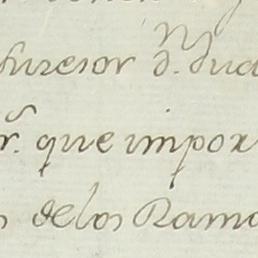 furesor d.n Jua
r. que impor
s delos Ramo